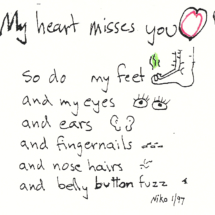 My heart misses you
So do my feet
and my eyes
and ears
and fingernails
and nose hairs
and belly button fuzz
Niko 1/97